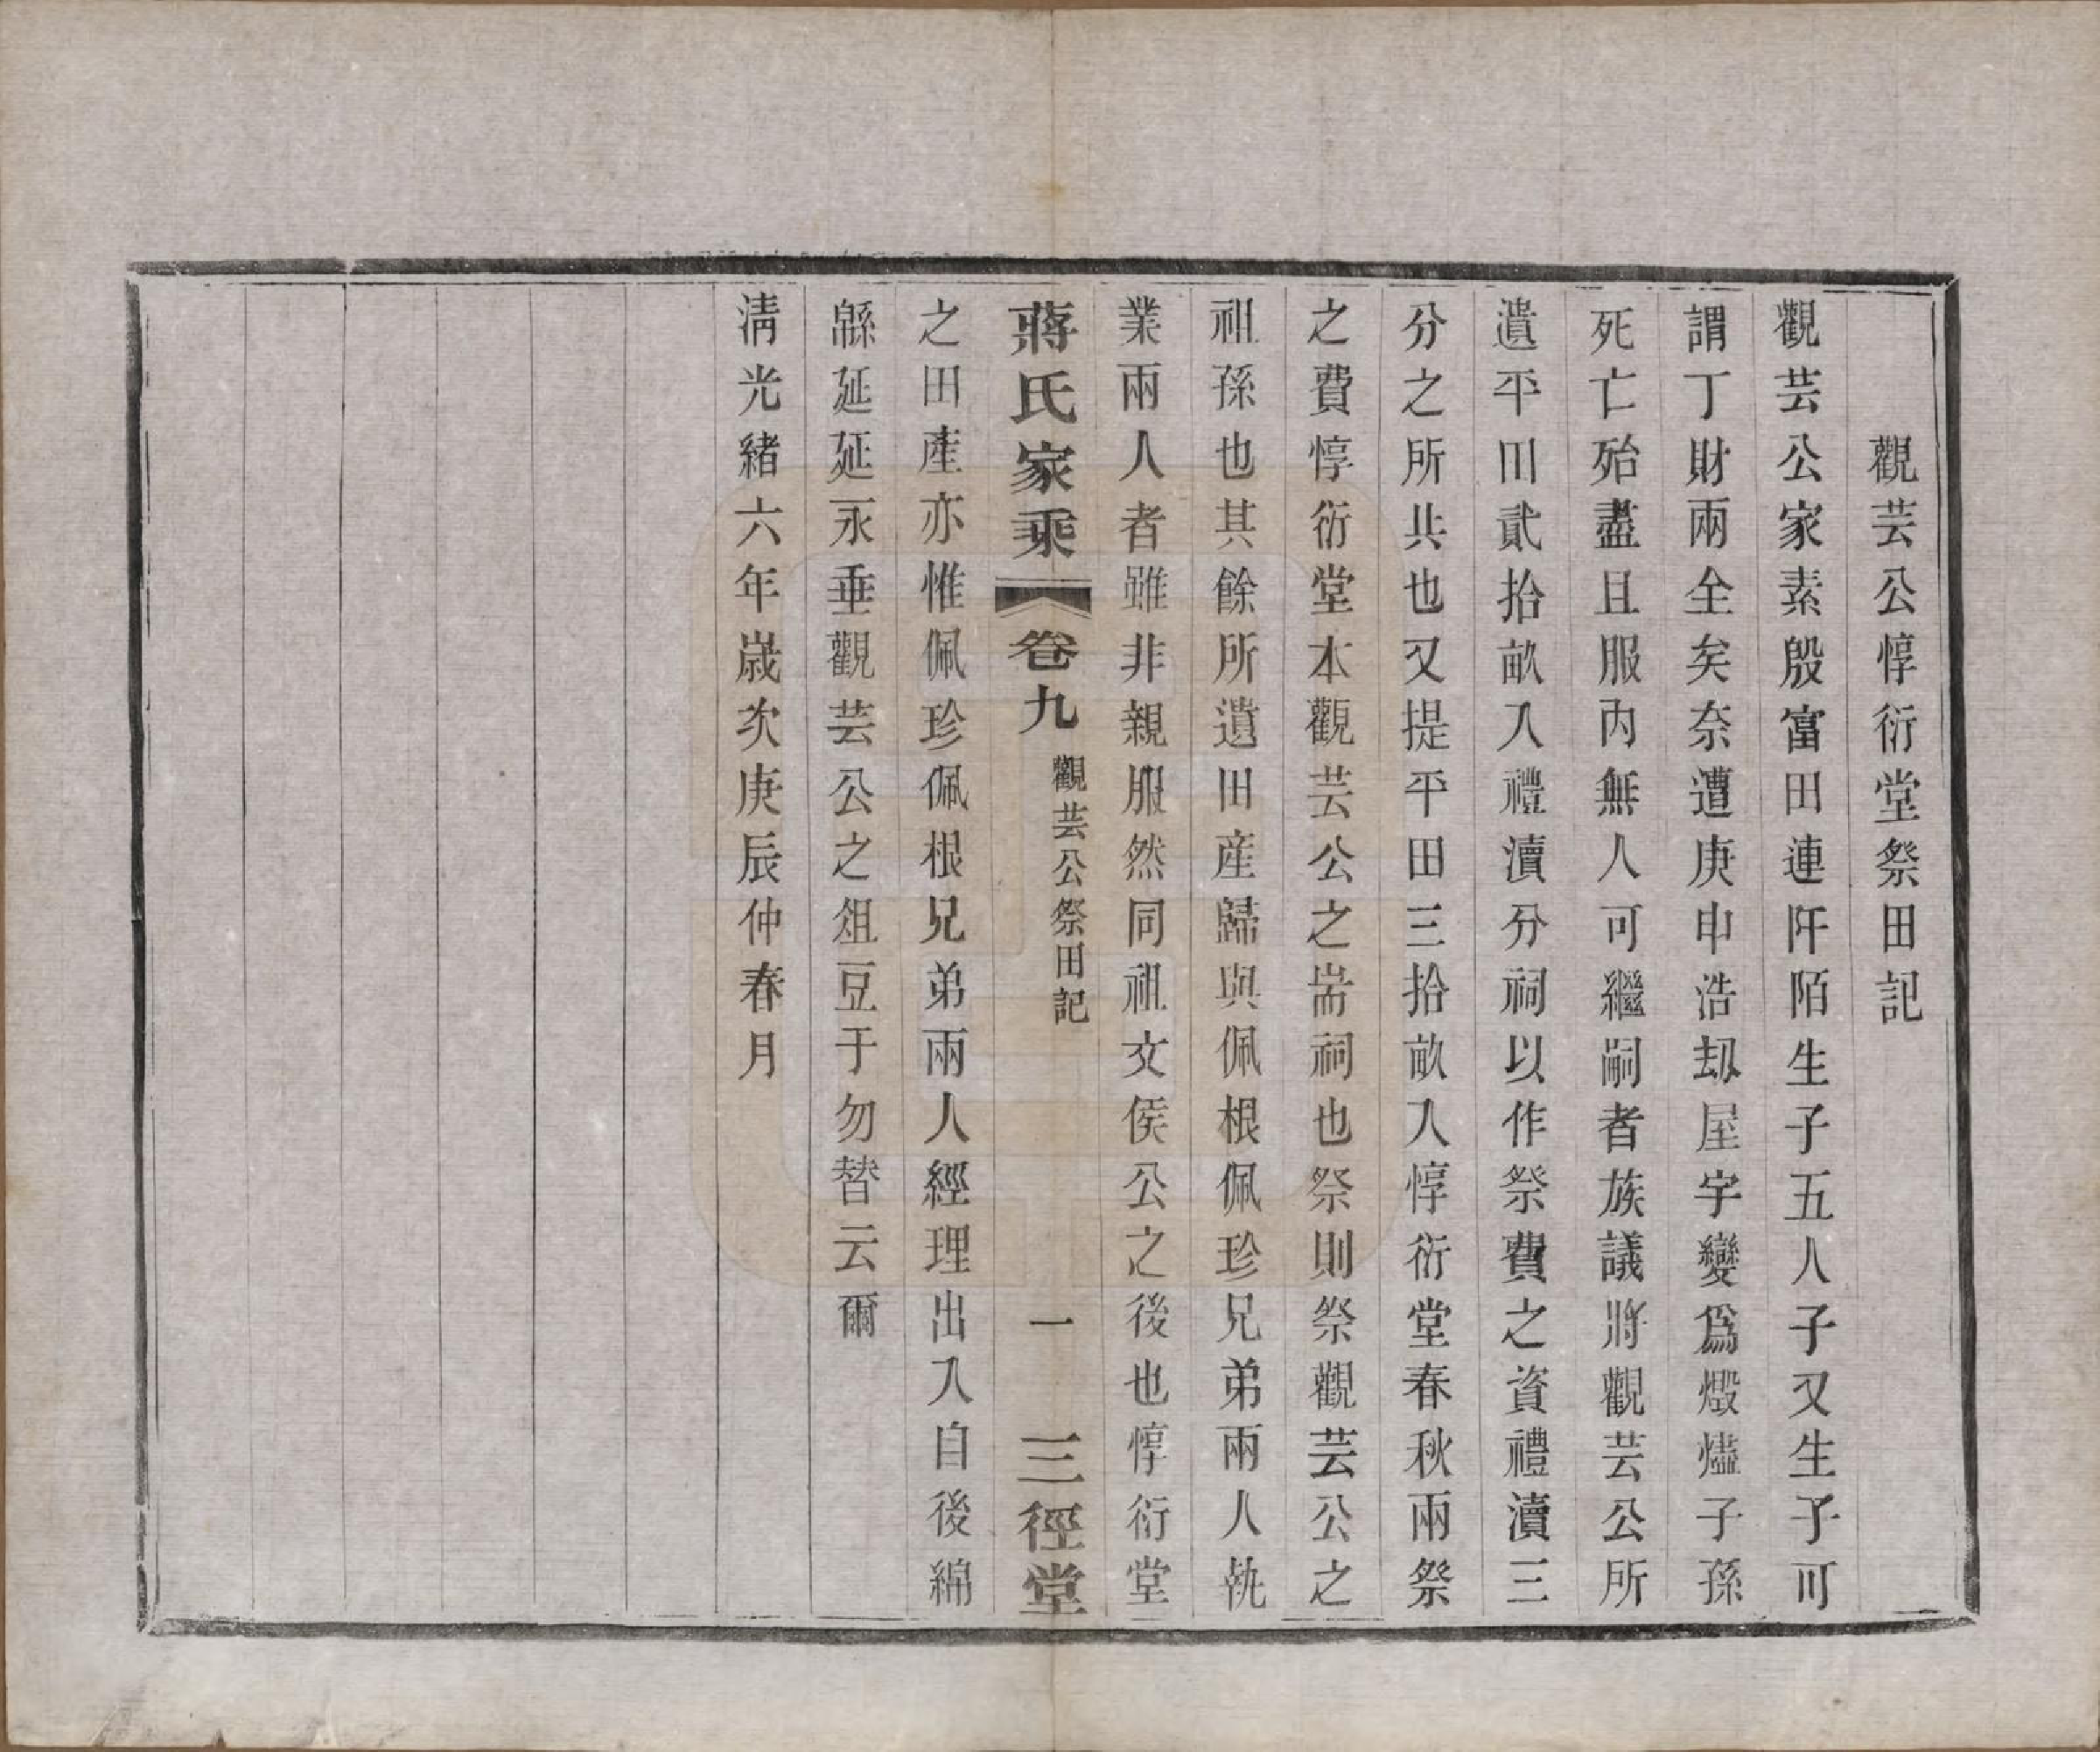 觀芸公惇衍堂祭田記
觀芸公家素殷富田連阡陌生子五人子又生子可
謂丁財兩全矣奈遭庚申浩刼屋宇變爲燬燼子孫
死亡殆盡且服內無人可繼嗣者族議將觀芸公所
遺平田貳拾畝入禮瀆分祠以作祭費之資禮瀆三
分之所共也又提平田三拾畝入惇衍堂春秋兩祭
之費惇衍堂本觀芸公之耑祠也祭則祭觀芸公之
祖孫也其餘所遺田産歸與佩根佩珍兄弟兩人執
業兩人者雖非親服然同祖文侯公之後也惇衍堂
蔣氏家乘 卷九 觀芸公祭田記 一 三徑堂
之田產亦惟佩珍佩根兄弟兩人經理出入自後綿
緜延延永垂觀芸公之俎豆于勿替云爾
清光緒六年歲次庚辰仲春月